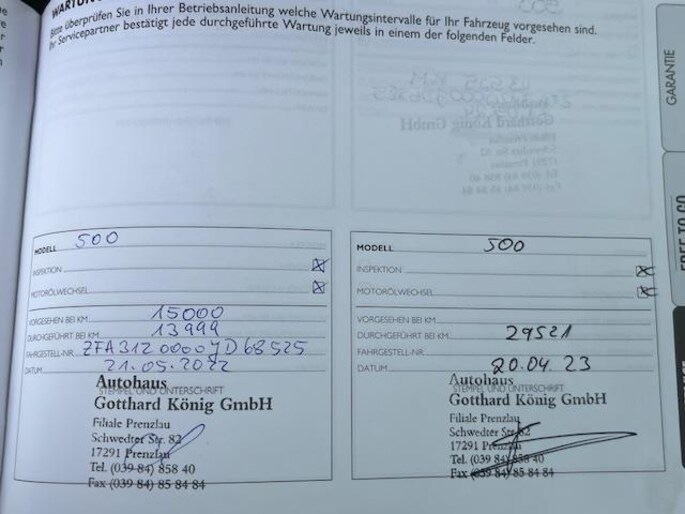 WARTUNG
Bitte überprüfen Sie in Ihrer Betriebsanleitung welche Wartungsintervalle für Ihr Fahrzeug vorgesehen sind.
Ihr Servicepartner bestätigt jede durchgeführte Wartung jeweils in einem der folgenden Felder.
GARANTIE
FREE TO GO
MODELL 500
INSPEKTION
MOTORÖLWECHSEL
VORGESEHEN BEI KM 15000
DURCHGEFÜHRT BEI KM 13999
FAHRGESTELL-NR. ZFA3120000JD68525
DATUM 21.05.2022
STEMPEL UND UNTERSCHRIFT
Autohaus
Gotthard König GmbH
Filiale Prenzlau
Schwedter Str. 82
17291 Prenzlau
Tel. (039 84) 858 40
Fax (039 84) 85 84 84
MODELL 500
INSPEKTION
MOTORÖLWECHSEL
VORGESEHEN BEI KM
DURCHGEFÜHRT BEI KM 29521
FAHRGESTELL-NR.
DATUM 20.04.23
STEMPEL UND UNTERSCHRIFT
Autohaus
Gotthard König GmbH
Filiale Prenzlau
Schwedter Str. 82
17291 Prenzlau
Tel. (039 84) 858 40
Fax (039 84) 85 84 84